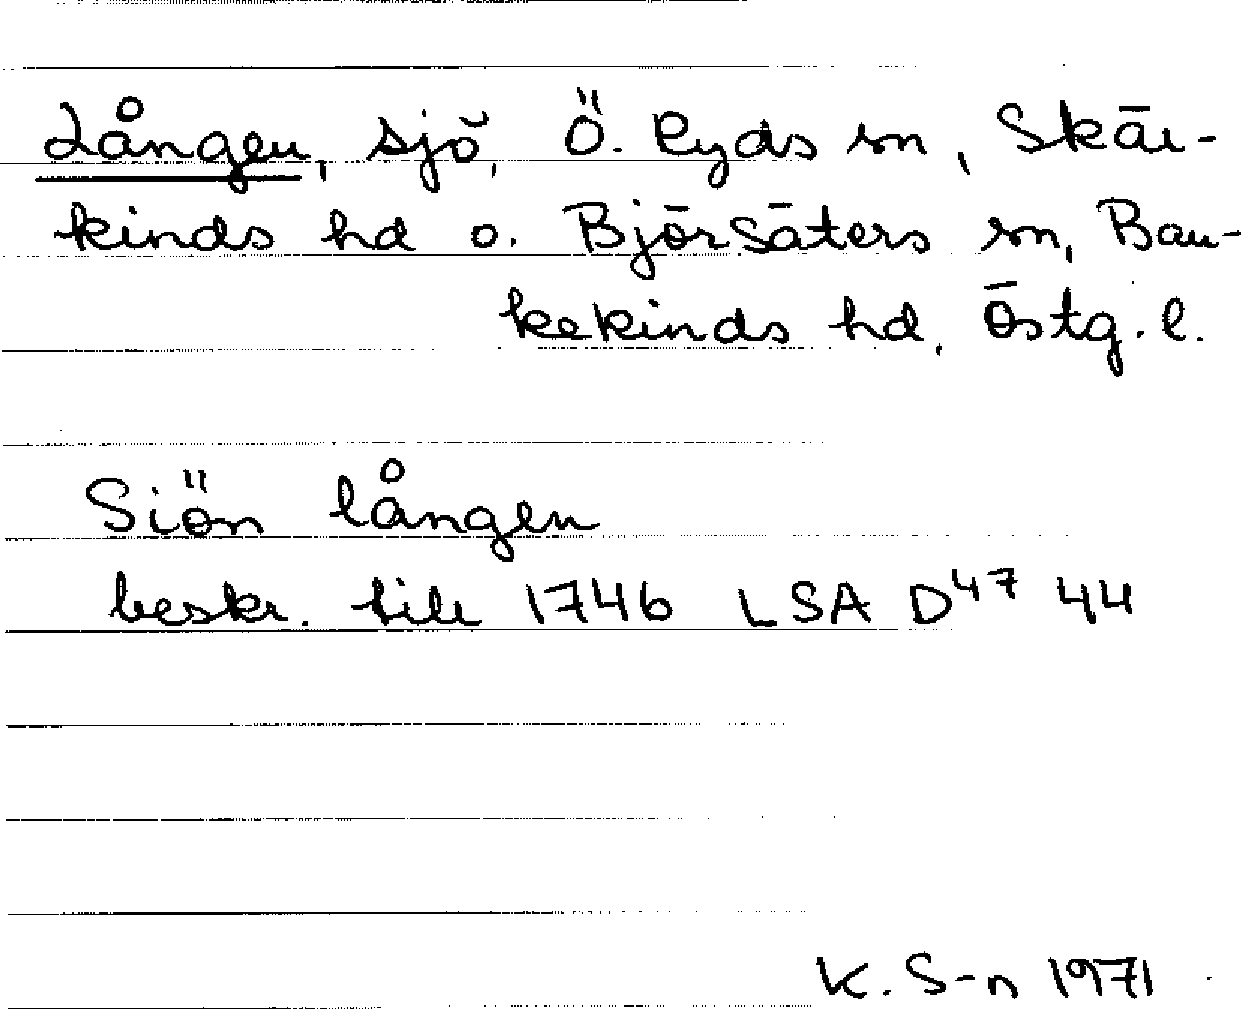 Lången, sjö, Ö. Ryds sn, Skär-
kinds hd o. Björsäters sn, Ban-
kekinds hd, Östg. l.
Siön lången
beskr. till 1746 LSA D47 44
K. S-n 1971